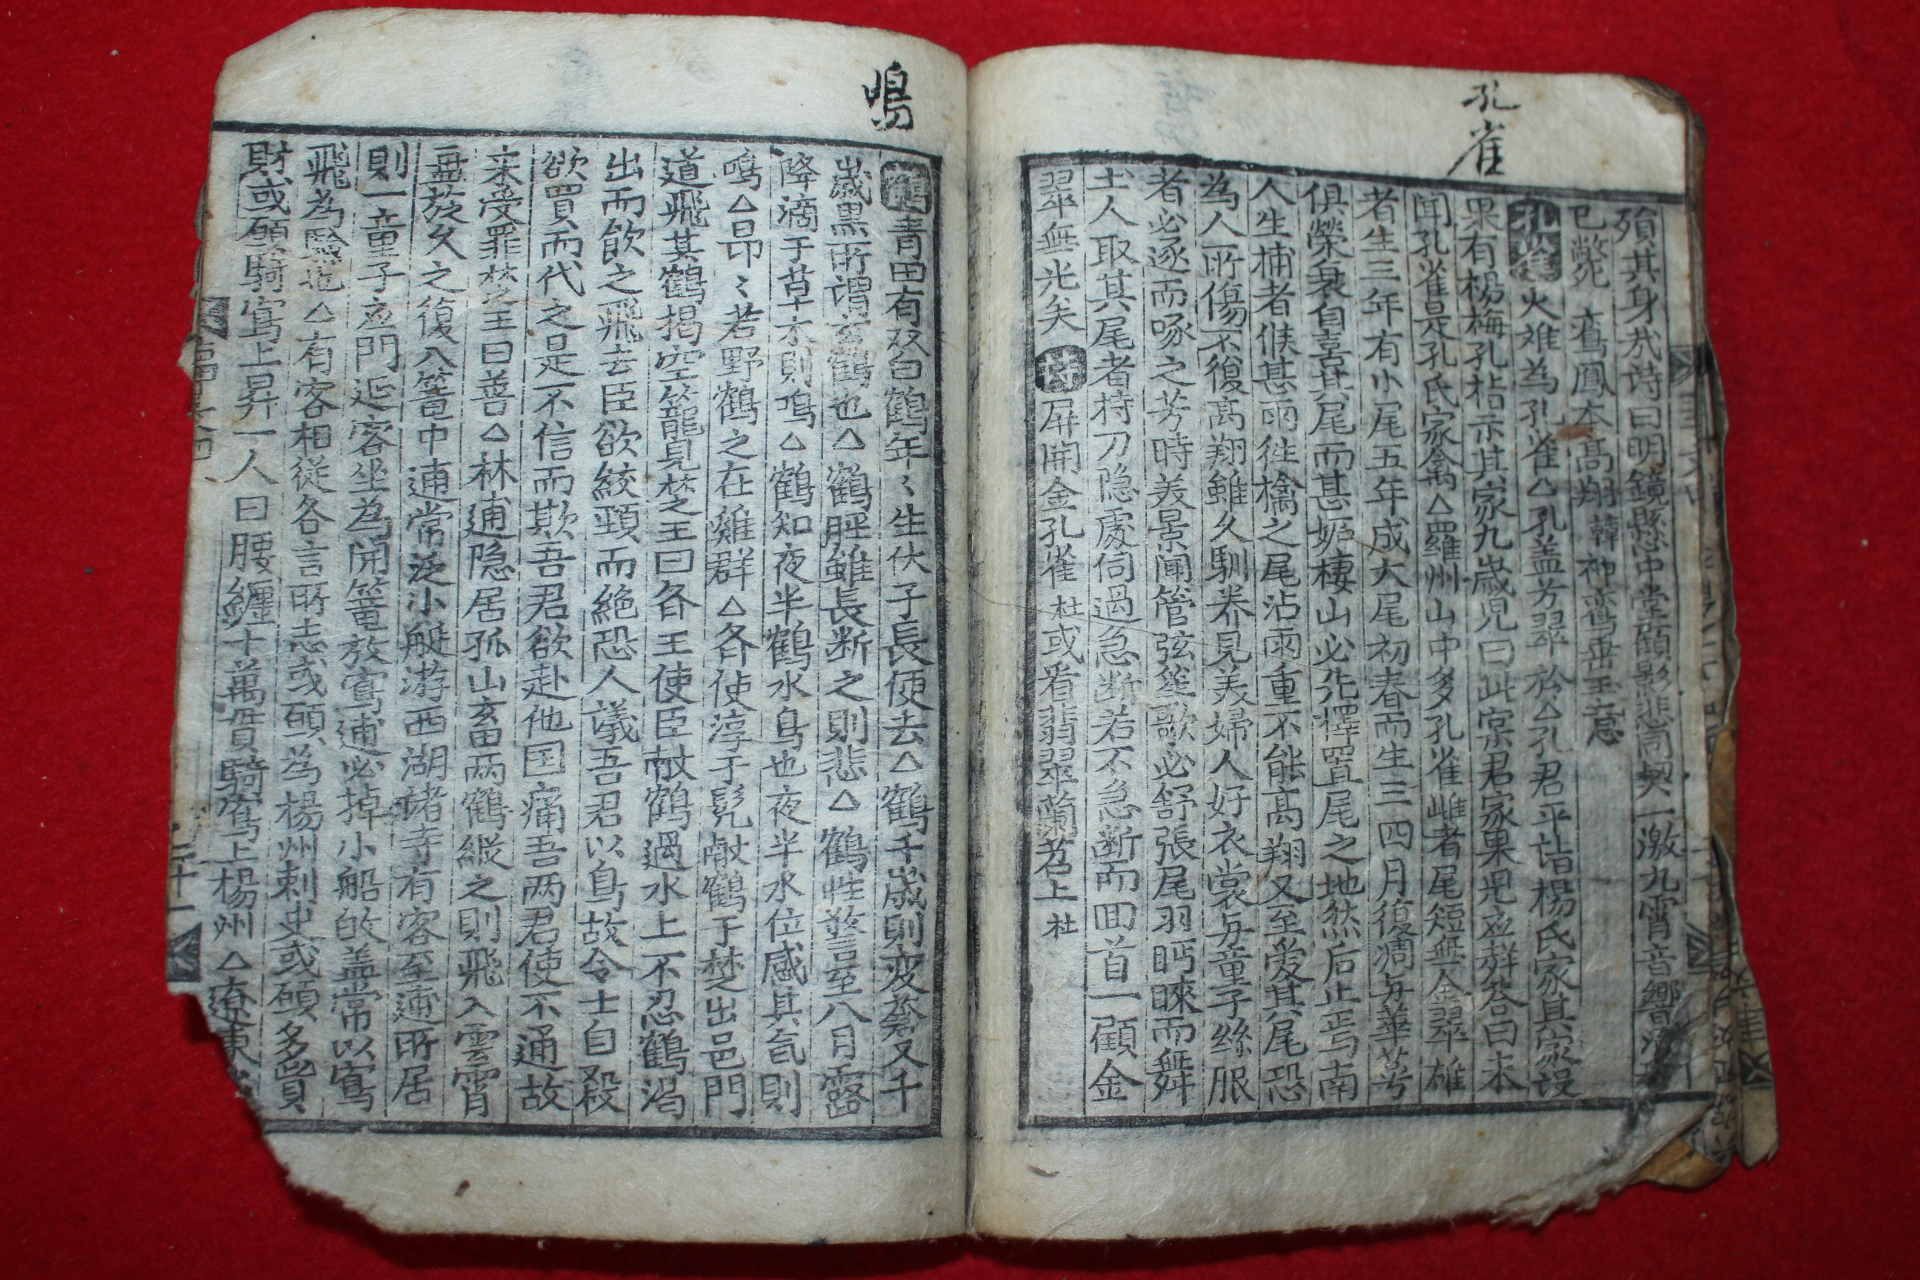 孔雀
殞其身哉詩曰明鏡懸中堂顧影悲同契一激九霄音響流
已斃 鸞鳳本高翔 韓
孔雀 火难為孔雀△孔盖芳翠於△孔君平詣楊氏家其家設
果有楊梅孔枯示其家九歲児曰此寔君家果児应聲答曰未
聞孔雀是孔氏家禽△羅州山中多孔雀雌者尾短無金翠雄
者生三年有小尾五年成大尾初春而生三四月復凋与華萼
俱榮衰自喜其尾而甚妬棲山必先擇置尾之地然后止焉南
人生捕者候甚雨往擒之尾沾雨重不能高翔又至愛其尾恐
為人所傷不復高翔雖久馴养見美婦人好衣裳与童子絲服
者必逐而啄之芳時美景聞管弦笙歌必舒張尾羽眄睞而舞
土人取其尾者持刀隐處伺過急断若不急断而囬首一顧金
翠無光矣 詩 屏開金孔雀 杜 或看翡翠蘭苕上 杜
鳴
鶴 青田有双白鶴年〻生伏子長便去△鶴千歲則变蒼又千
歲黒所謂玄鶴也△鶴脛雖長断之則悲△鶴性警言至八月露
降滴于草木則鳴△鶴知夜半鶴水鳥也夜半水位感其氣則
鳴△昂〻若野鶴之在雞群△各使淳于髡献鶴于楚出邑門
道飛其鶴揭空籠見楚之王曰各王使臣献鶴過水上不忍鶴渴
出而飲之飛去臣欲絞頸而絶恐人議吾君以鳥故令士自殺
欲買而代之是不信而欺吾君欲赴他国痛吾两君使不通故
来受罪楚王曰善△林逋隐居孤山畜两鶴縦之則飛入雲霄
盘旋久之復入篭中逋常泛小艇游西湖諸寺有客至逋所居
則一童子应門延客坐為開篭放寉逋必掉小船的盖常以寉
飛為驗也△有客相從各言所志或願為楊州刺史或願多貲
財或願騎寉上昇一人曰腰纏十萬貫騎寉上楊州△遼東